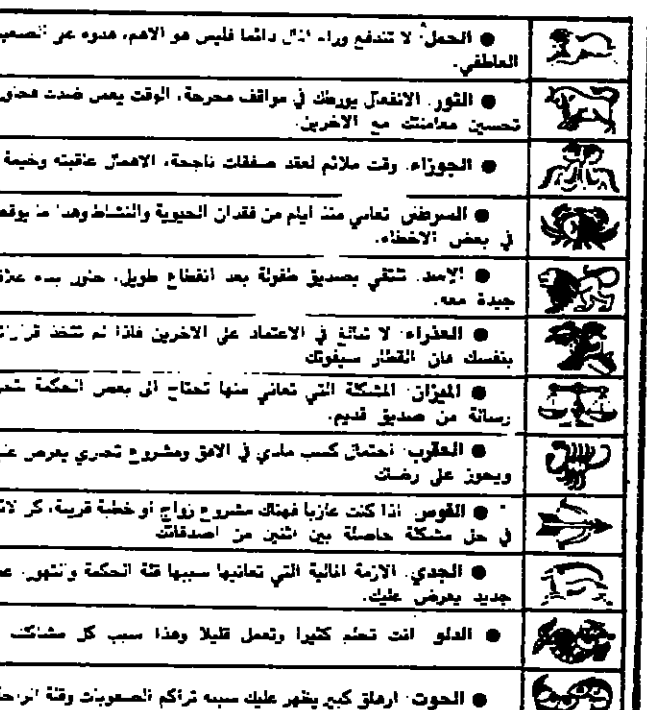 ● الحمل: لا تندفع وراء المال دائما فليس هو الاهم، هدوء على الصعيد
العاطفي.
● الثور. الانفعال يورطك في مواقف محرجة، الوقت يعمل ضدك فحاول
تحسين معاملتك مع الاخرين.
● الجوزاء. وقت ملائم لعقد صفقات ناجحة، الاهمال عاقبته وخيمة
● السرطان تعاني منذ ايام من فقدان الحيوية والنشاط وهذا ما يوقعك
في بعض الاخطاء.
● الاسد. تلتقي بصديق طفولة بعد انقطاع طويل، حاول بدء
جيدة معه.
● العذراء لا تبالغ في الاعتماد على الاخرين فاذا لم تتخذ
بنفسك فان القطار سيفوتك
● الميزان: المشكلة التي تعاني منها تحتاج الى بعض الحكمة
رسالة من صديق قديم.
● العقرب: احتمال كسب مادي في الافق ومشروع تجاري يعرض
ويحوز على رضاك
● القوس: اذا كنت عازبا فهناك مشروع زواج او خطبة قريبة،
في حل مشكلة حاصلة بين اثنين من اصدقائك
● الجدي. الازمة المالية التي تعانيها سببها قلة الحكمة والتهور.
جديد يعرض عليك.
● الدلو انت تحلم كثيرا وتعمل قليلا وهذا سبب كل مشاكلك
● الحوت: ارهاق كبير يظهر عليك سببه تراكم الصعوبات وقلة